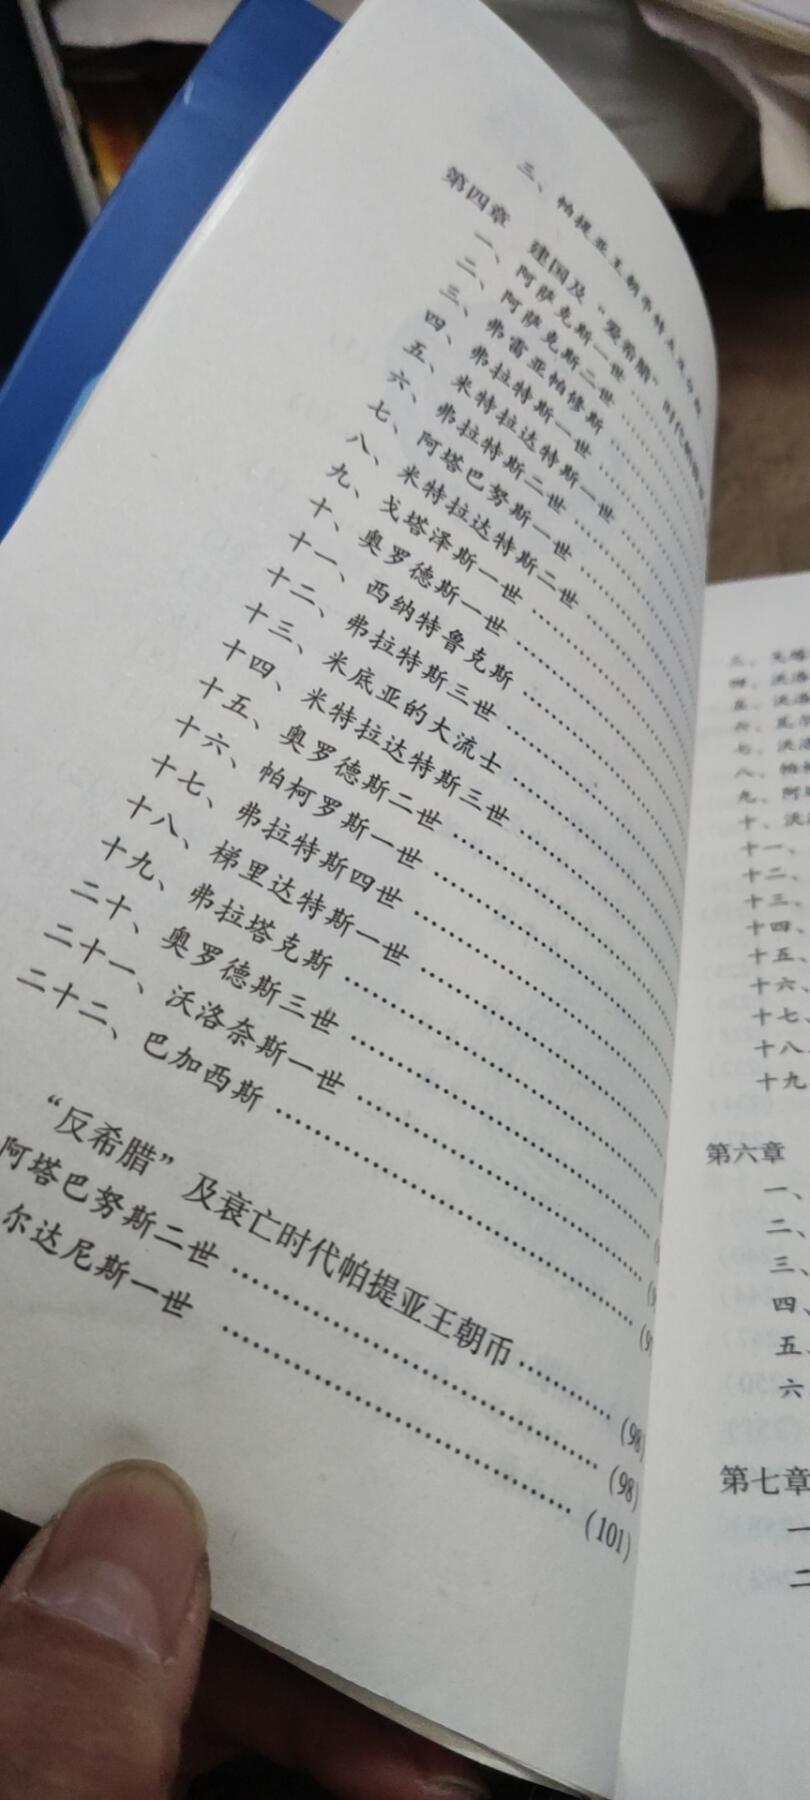 三、帕提亚王朝币特点及分类
第四章 建国及“爱希腊”时代帕提亚
一、阿萨克斯一世
二、阿萨克斯二世
三、弗雷亚帕修斯
四、弗拉特斯一世
五、米特拉达特斯一世
六、弗拉特斯二世
七、阿塔巴努斯一世
八、米特拉达特斯二世
九、戈塔泽斯一世
十、奥罗德斯一世
十一、西纳特鲁克斯
十二、弗拉特斯三世
十三、米底亚的大流士
十四、米特拉达特斯三世
十五、奥罗德斯二世
十六、帕柯罗斯一世
十七、弗拉特斯四世
十八、梯里达特斯一世
十九、弗拉塔克斯
二十、奥罗德斯三世
二十一、沃洛奈斯一世
二十二、巴加西斯
“反希腊”及衰亡时代帕提亚王朝币 (98)
阿塔巴努斯二世 (98)
尔达尼斯一世 (101)
三、戈塔
四、沃洛
五、沃洛
六、瓦尔
七、沃洛
八、帕柯
九、阿塔
十、沃洛
十一、
十二、
十三、
十四、
十五、
十六、
十七、
十八、
十九
第六章
一、
二、
三、
四、
五、
六
第七章
一
二